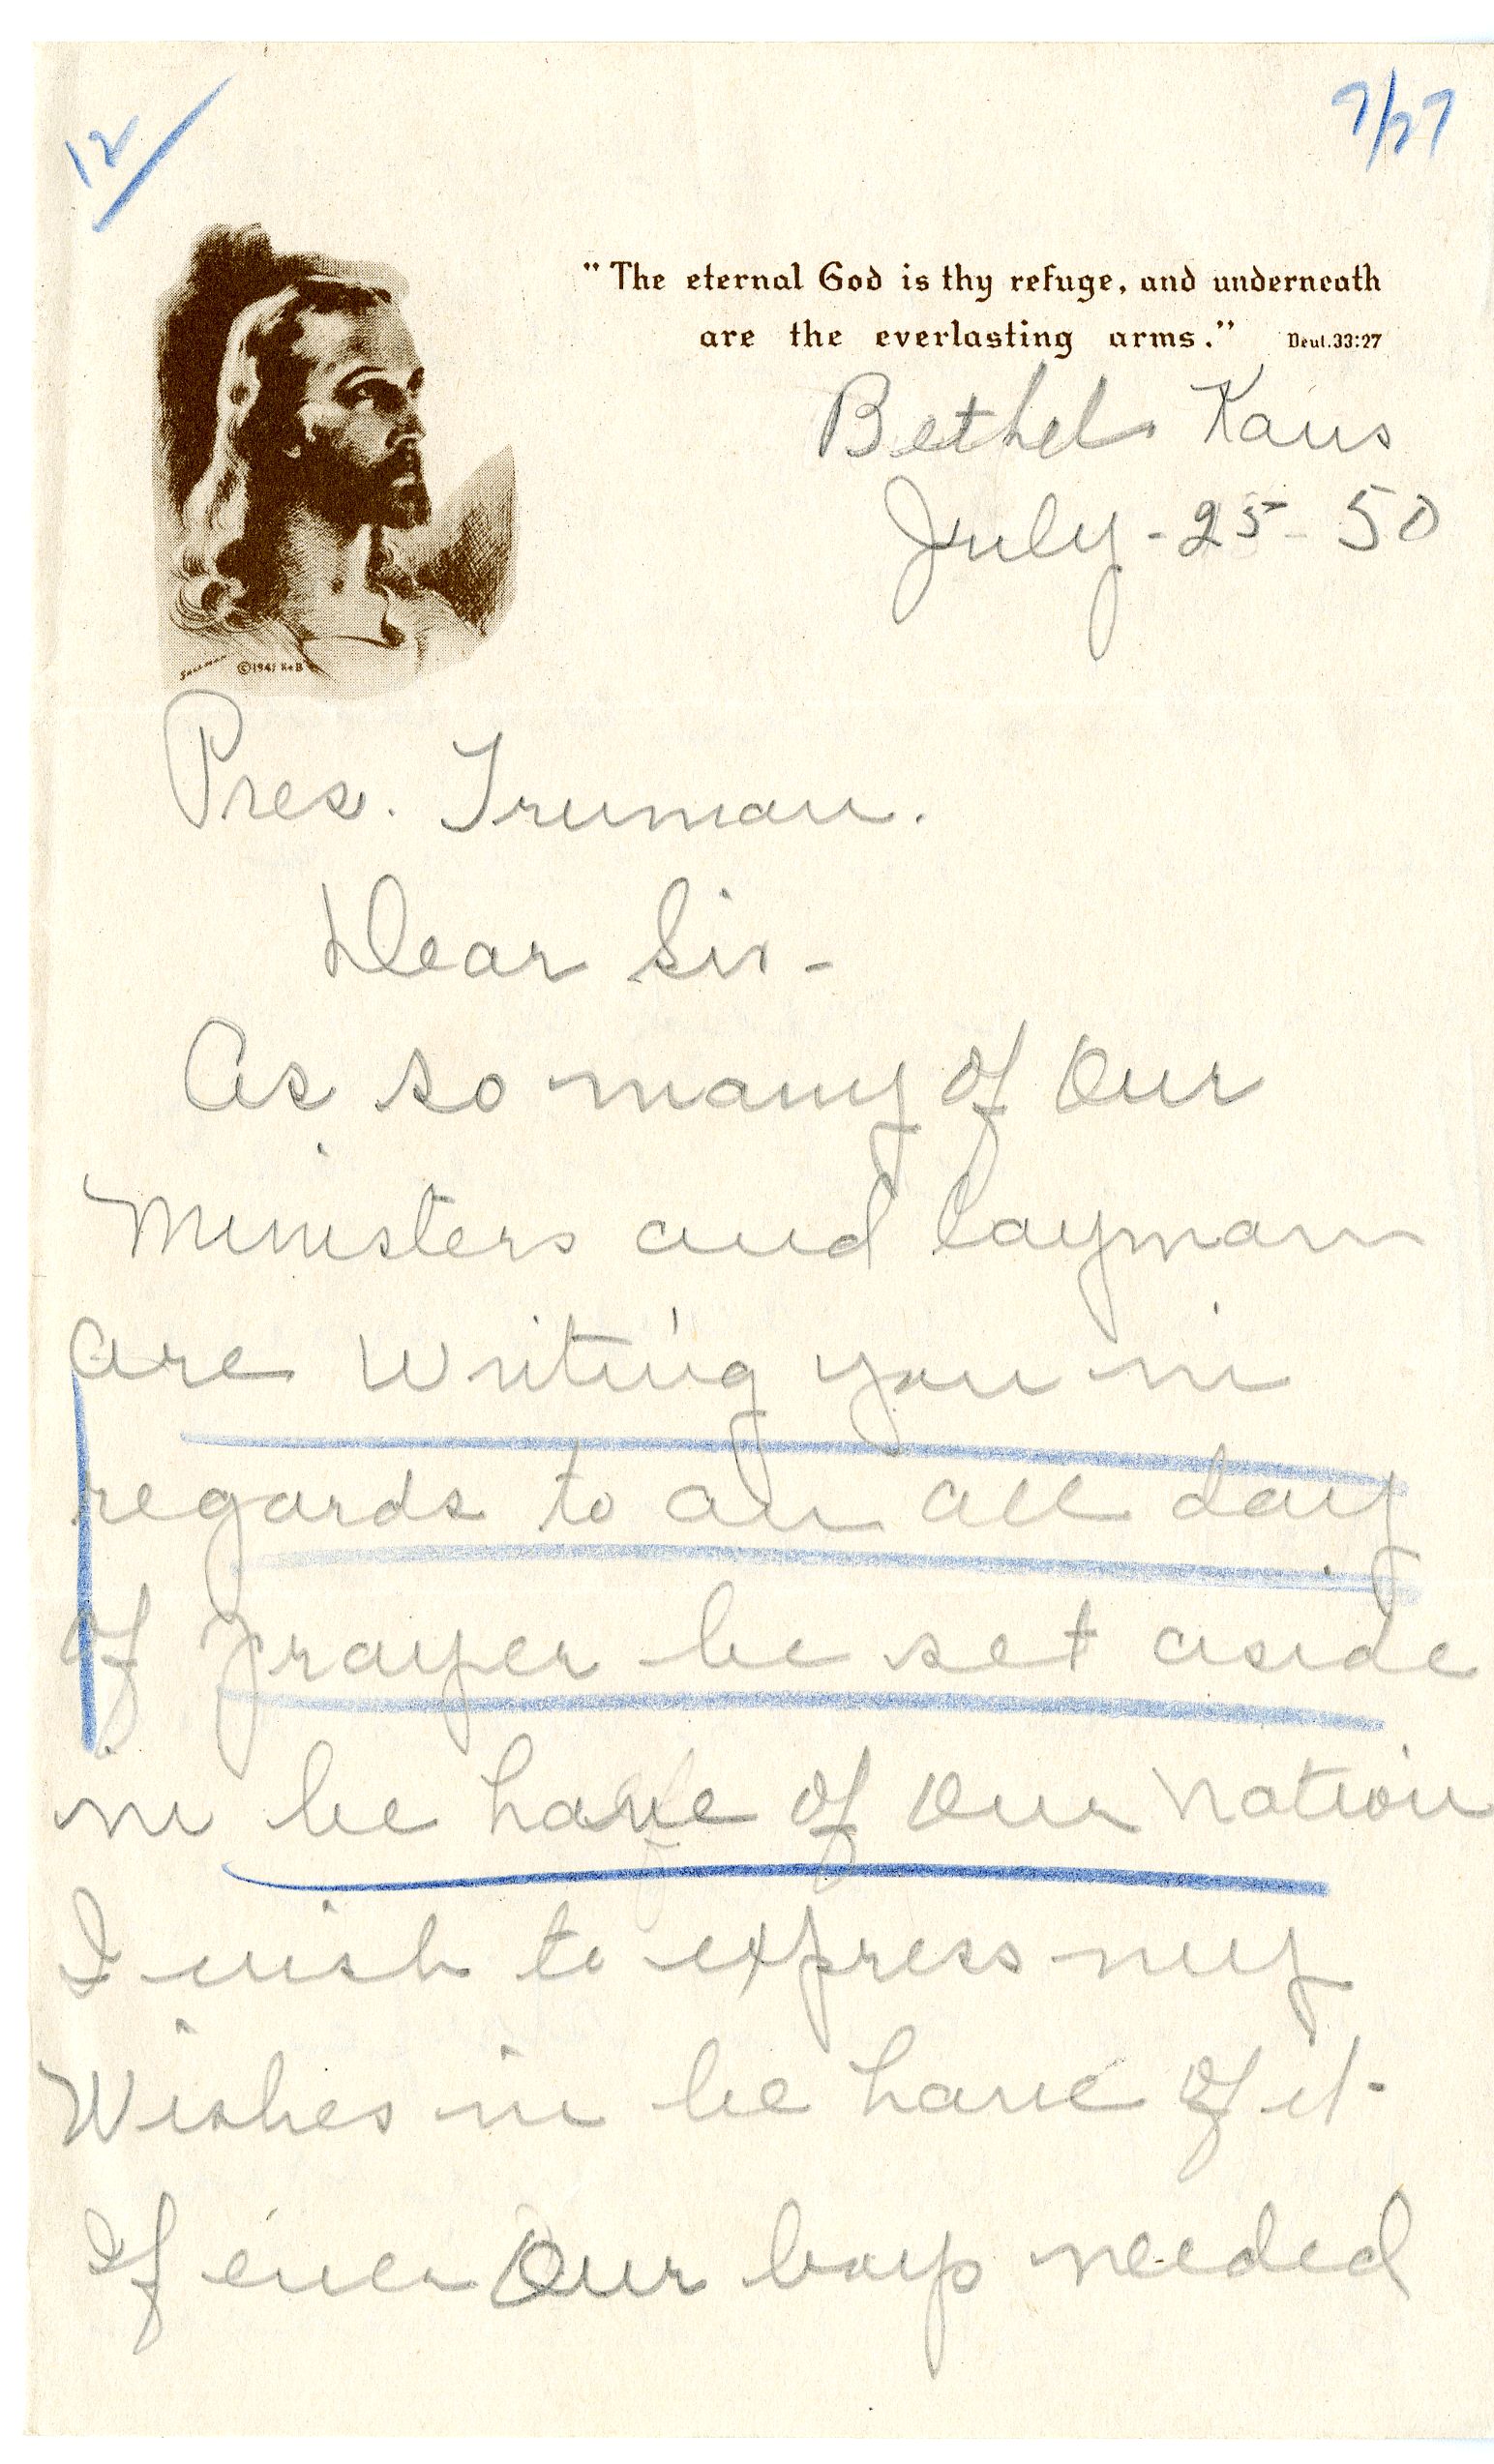 12/
7/27
"The eternal God is thy refuge, and underneath
are the everlasting arms." Deut. 33:27
Bethel Kans
July - 25 - 50
Sallman © 1941 K&B
Pres. Truman.
Dear Sir -
As so many of Our
Ministers and layman
are writing you in
regards to an all day
of prayer be set aside
in be have of Our Nation
I wish to express my
Wishes in be have of it.
If ever Our boys needed